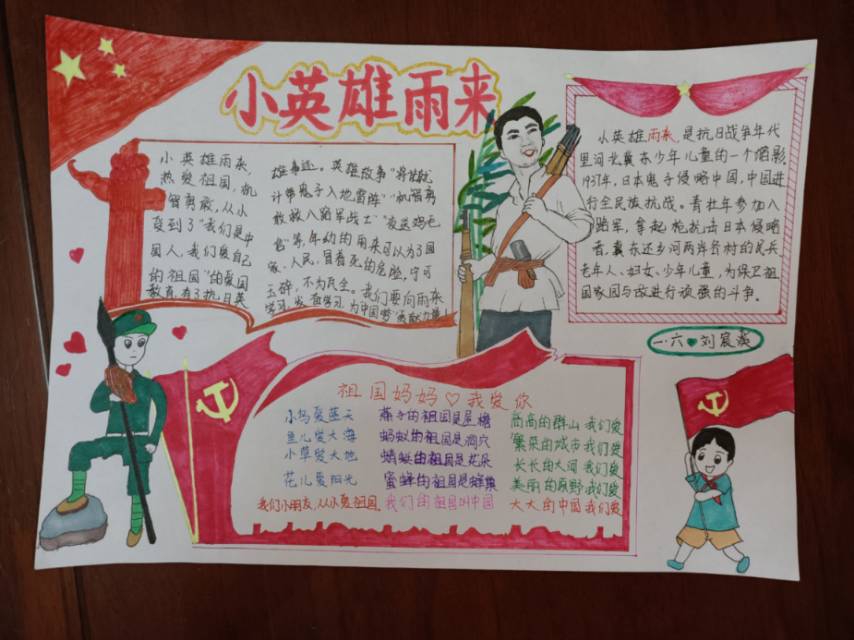 小英雄雨来
小英雄雨来，
热爱祖国，机
智勇敢，从小
受到了“我们是中
国人，我们爱自己
的祖国”的爱国
教育，有了抗日英
雄事迹。英雄故事“将就
计带鬼子入地雷阵”“机智勇
敢救八路军战士”“夜送鸡毛
信”等，年幼的雨来可以为了国
家、人民，冒着死的危险，宁可
玉碎，不为瓦全。我们要向雨来
学习，发奋学习，为中国梦贡献力量
小英雄雨来，是抗日战争年代
里河北冀东少年儿童的一个缩影。
1937年，日本鬼子侵略中国，中国进
行全民族抗战。青壮年参加八
路军，拿起枪抗击日本侵略
者，冀东还乡河两岸各村的民兵、
老年人、妇女、少年儿童，为保卫祖
国家园与敌进行顽强的斗争。
一·六 刘宸
祖国妈妈♡我爱你
小鸟爱蓝天 燕子的祖国是屋檐 高高的群山我们爱
鱼儿爱大海 蚂蚁的祖国是洞穴 繁荣的城市我们爱
小草爱大地 的祖国是花朵 长长的大河我们爱
花儿爱阳光 蜜蜂的祖国是蜂巢 美丽的原野我们爱
我们小朋友，从小爱祖国 我们的祖国叫中国 大大的中国我们爱